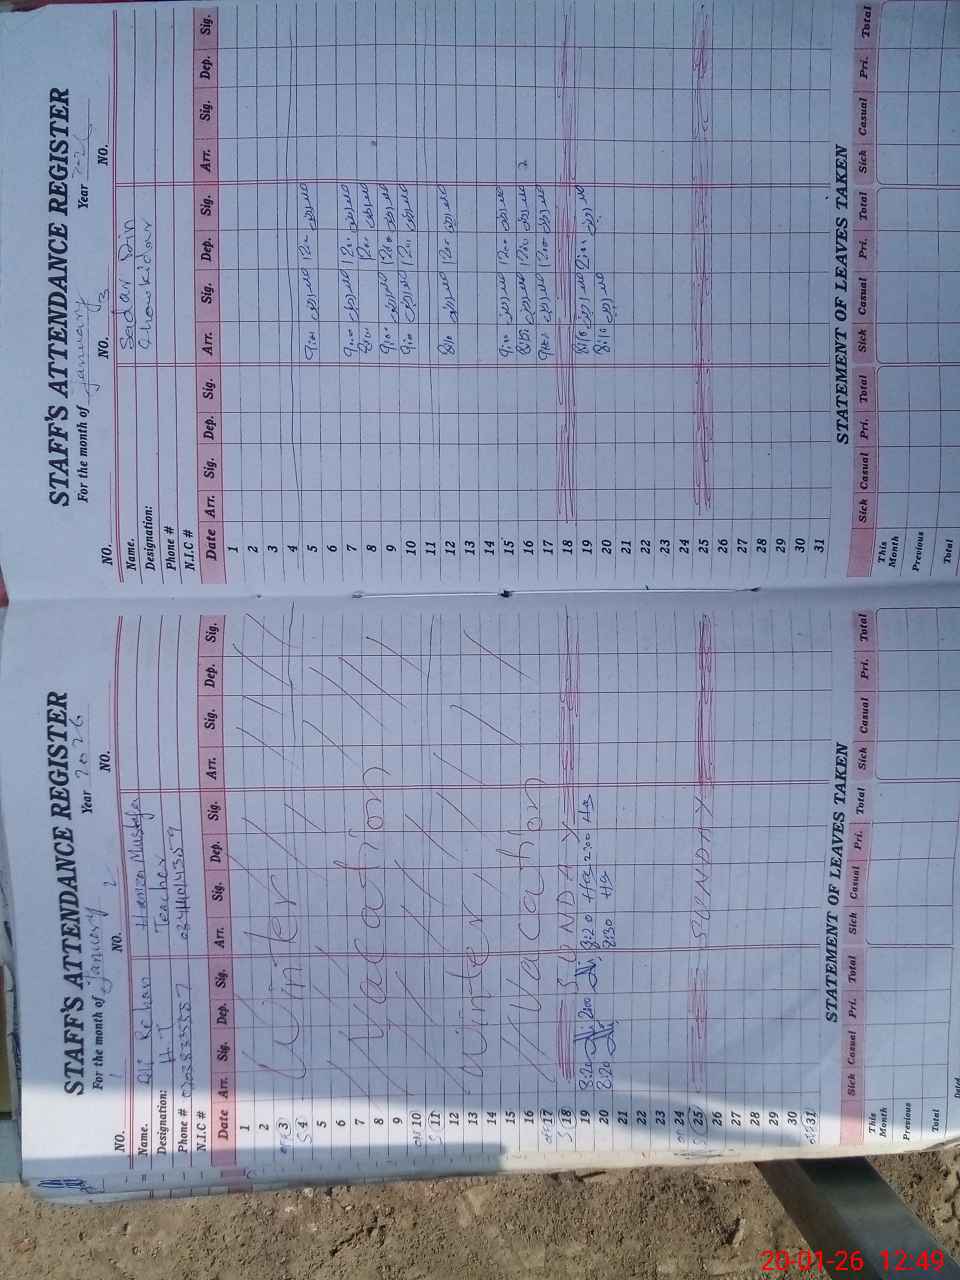 STAFF'S ATTENDANCE REGISTER
For the month of January Year 2026
NO. 1 NO. 2 NO.
Name. Ali Rehan Hamza Mustafa
Designation: H.T Teacher
Phone #
N.I.C #
Date Arr. Sig. Dep. Sig. Arr. Sig. Dep. Sig. Arr. Sig. Dep. Sig.
1
2
off 3
S 4
5
6
7
8
9
off 10
S 11
12
13
14
15
16
off 17
Winter Vacation
Winter Vacation
S 18 SUNDAY
19 8:20 2:00 8:20 Ha 2:00 Ha
20 8:20 8:30 Ha
21
22
23
off 24
S 25 SUNDAY
26
27
28
29
30
off 31
STATEMENT OF LEAVES TAKEN
Sick Casual Pri. Total Sick Casual Pri. Total Sick Casual Pri. Total
This Month
Previous
Total
Dated
STAFF'S ATTENDANCE REGISTER
For the month of January Year
NO. NO. 3 NO.
Name. Sadar Din
Designation: Chowkidar
Phone #
N.I.C #
Date Arr. Sig. Dep. Sig. Arr. Sig. Dep. Sig. Arr. Sig. Dep. Sig.
1
2
3
4
5 9:00 12:00
6
7 9:00 12:00
8 12:00
9 9:00 12:00
10 9:00 12:00
11
12 12:00
13
14
15 9:00 12:00
16 12:00
17 9:00 12:00
18
19 8:10 2:00
20 8:10
21
22
23
24
25
26
27
28
29
30
31
STATEMENT OF LEAVES TAKEN
Sick Casual Pri. Total Sick Casual Pri. Total Sick Casual Pri. Total
This Month
Previous
Total
20-01-26 12:49